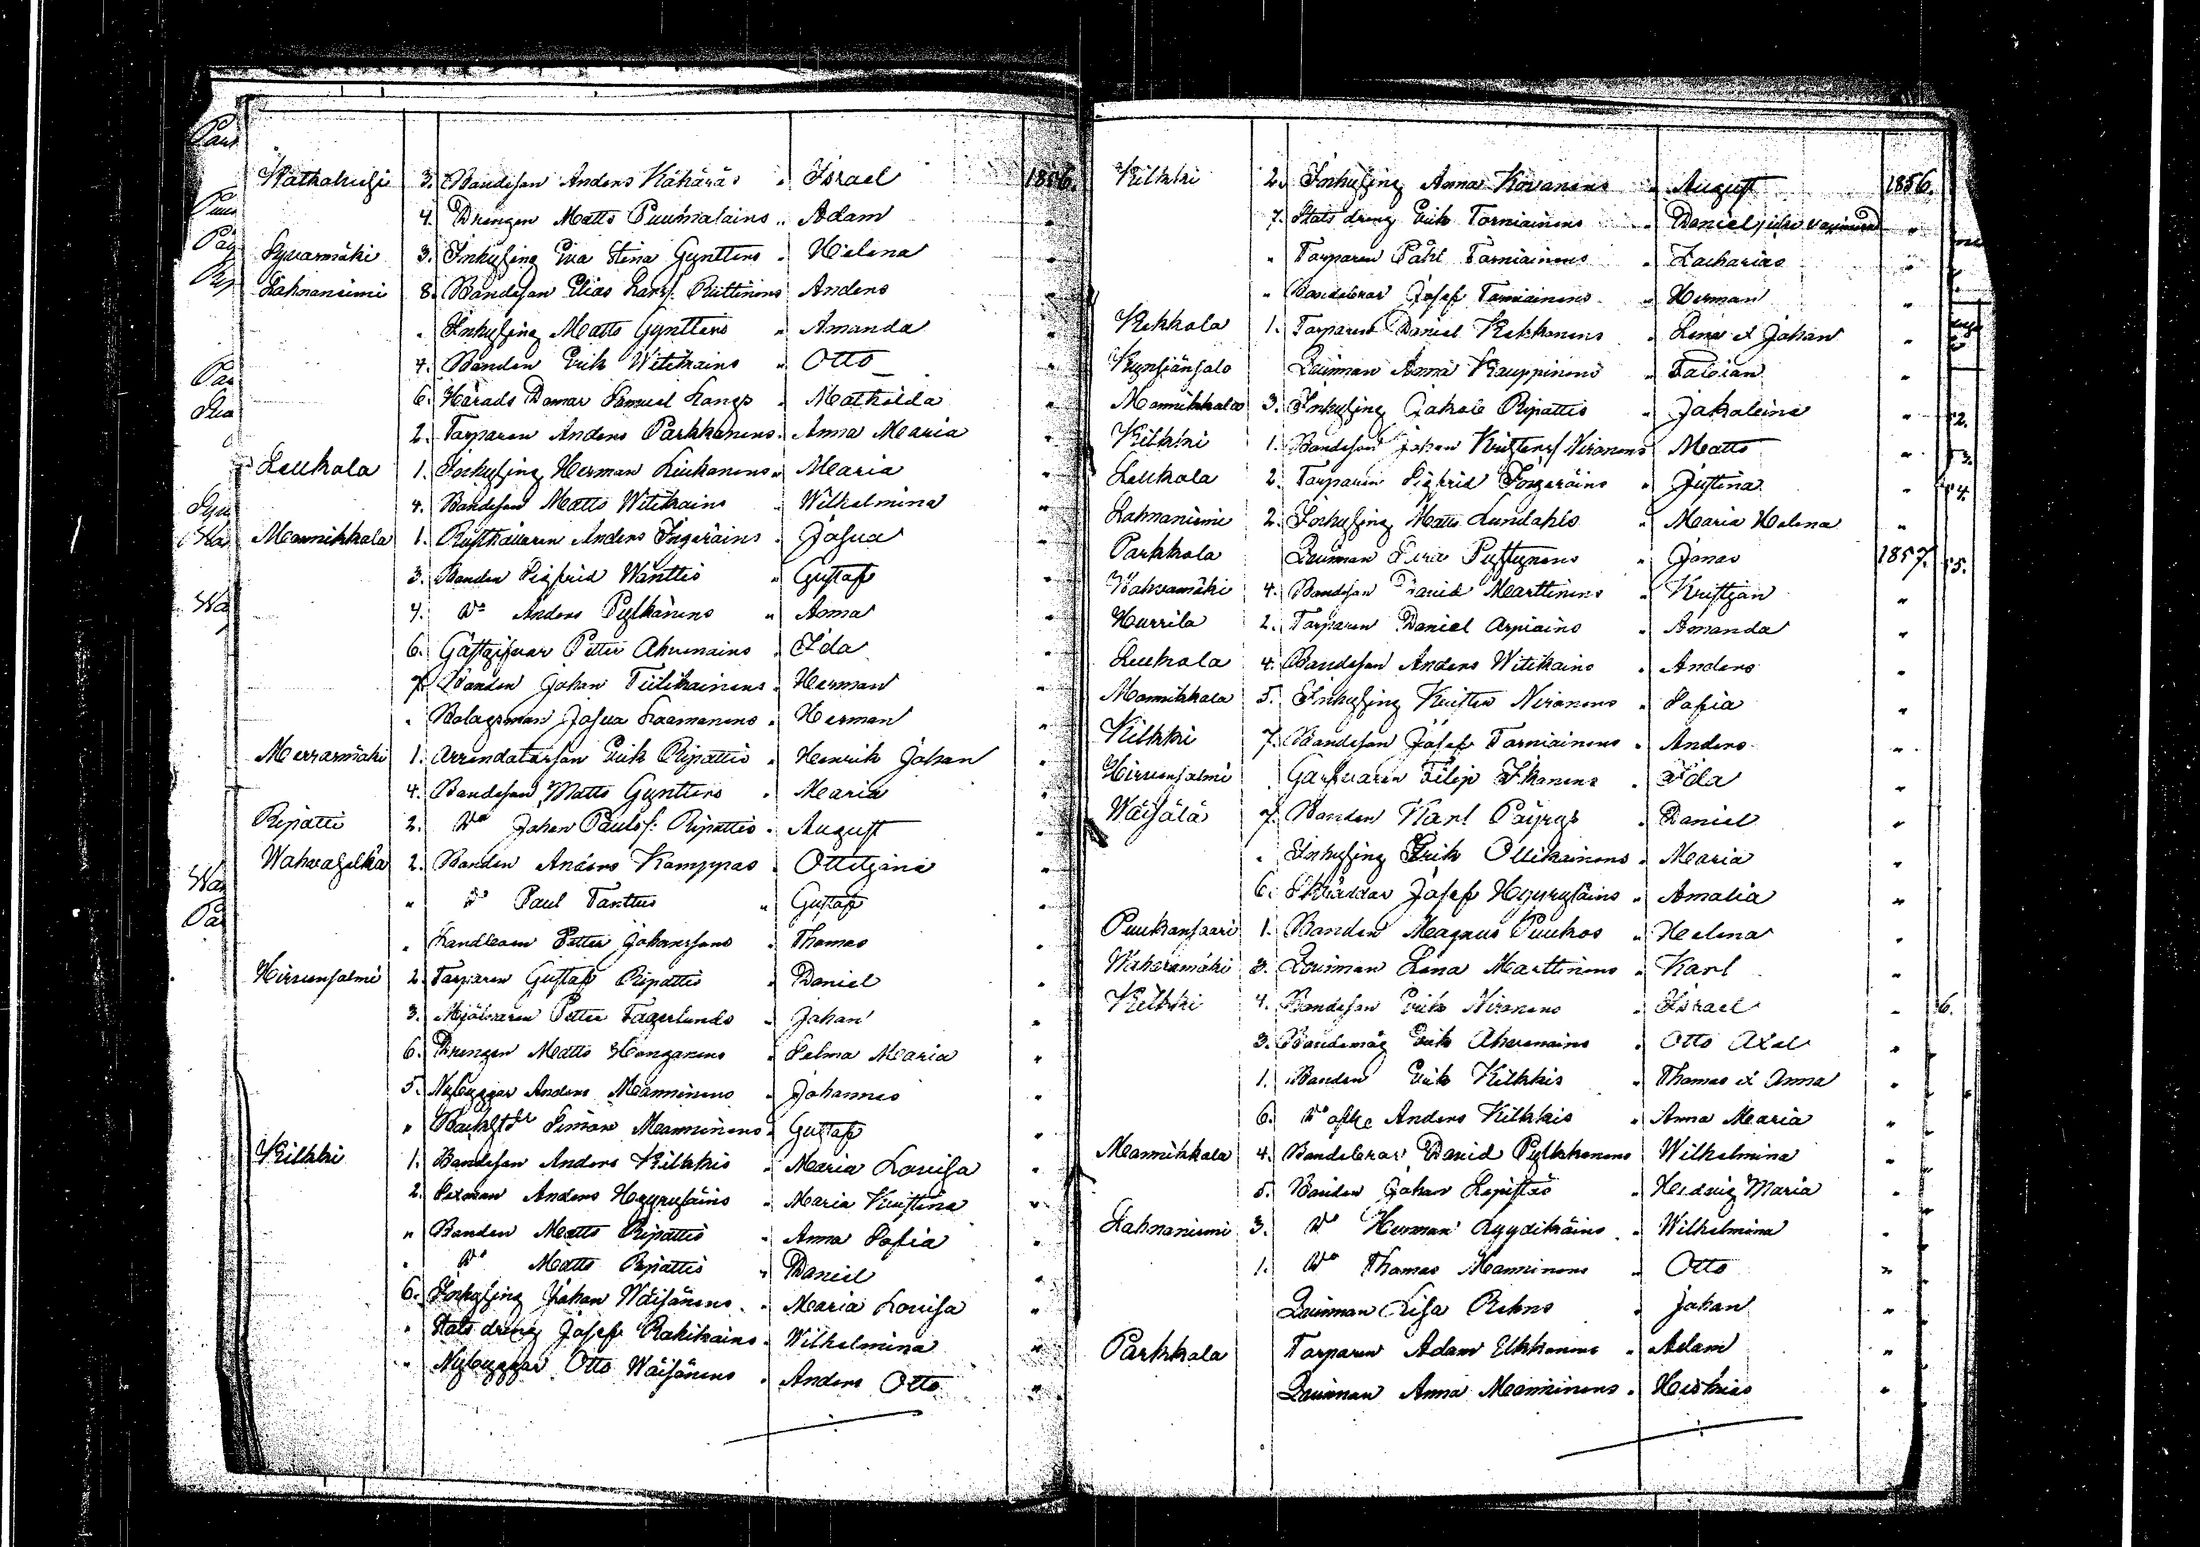 Watkalusi 3. Bondeson Anders Kähäräs " Israel 1856.
4. Drengen Matts Puumalains " Adam "
Syvarmäki 3. Inhysing Eva Stina Gyntters " Helena "
Lahnaniemi 8. Bondeson Elias Larss. Rittinens Anders "
" Inhysing Matts Gyntters " Amanda "
4. Bonden Erik Witikains " Otto "
6. Härads Domar Samuel Langs " Mathilda "
2. Torparen Anders Parkkonens " Anna Maria "
Leukola 1. Inhysing Herman Liukonens " Maria "
4. Bondeson Matts Witikains " Wilhelmina "
Mannikkala 1. Rusthållaren Anders Ingeräins " Josua "
3. Bonden Sigfrid Wanttis " Gustaf "
4. Do Anders Pylkänens " Anna "
6. Gästgifvar Petter Ahvenains " Ida "
7. Bonden Johan Tiilikainens " Herman "
" Bolagsman Josua Laamanens " Herman "
Merrasmäki 1. Arrendatorson Erik Ripattis " Henrik Johan "
4. Bondeson Matts Gyntters " Maria "
Ripatti 2. Do Johan Paulss. Ripattis " August "
Wahvaselkä 2. Bonden Anders Kamppas " Ottiljana "
" Do Paul Tanttus " Gustaf "
" Landboen Petter Johanssons " Thomas "
Hirvensalmi 2. Torparen Gustaf Ripattis " Daniel "
3. Mjölnaren Petter Fagerlunds " Johan "
6. Drengen Matts Honganens " Selma Maria "
5. Nybyggar Anders Manninens " Johannes "
" Simon Manninens " Gustaf "
Kilkki 1. Bondeson Anders Kilkkis " Maria Lovisa "
2. Sexman Anders Höyrysäins " Maria Kristina "
" Bonden Matts Ripattis " Anna Sofia "
" Do Matts Ripattis " Daniel "
6. Inhysing Johan Wäisänens " Maria Lovisa "
" Stats dreng Josef Rakikains " Wilhelmina "
" Nybyggar Otto Wäisänens " Anders Otto "
Kilkki 2. Inhysing Anna Kovanens " August 1856.
7. Stats dreng Erik Torniainens " Daniel "
" Torparen Påhl Torniainens " Zacharias "
" Bondebror Josef Torniainens " Herman "
Kekkola 1. Torparen Daniel Kekkonens " Lena et Johan "
Kynsiänsalo Qvinnan Anna Kauppinens " Fabian "
Mannikkala 3. Inhysing Jakob Ripattis " Jakobina "
Kilkki 1. Bondeson Johan Kristers. Niranens Matts "
Leukola 2. Torparen Sigfrid Ingeräins " Justina "
Lahnaniemi 2. Inhysing Matts Lundahls " Maria Helena "
Parkkola Qvinnan Pustynens " Jonas 1857.
Wahvamäki 4. Bondeson David Marttinens " Kristjan "
Hurrila 2. Torparen Daniel Arpiains " Amanda "
Leukola 4. Bondeson Anders Witikains " Anders "
Mannikkala 5. Inhysing Krister Niranens " Sofia "
Kilkki 7. Bondeson Josef Torniainens " Anders "
Hirvensalmi Garfvaren Filip Ikonens " Ida "
Wäisälä 7. Bonden Karl Pöyrys " Daniel "
" Inhysing Erik Ollikainens " Maria "
6. Skräddar Josef Höyrysäins " Amalia "
Puukonsaari 1. Bonden Magnus Puukos " Helena "
Wahvamäki 3. Qvinnan Lena Marttinens " Karl "
Kilkki 4. Bondeson Erik Niranens " Israel "
3. Bondemåg Erik Ahvenains " Otto Axel "
1. Bonden Erik Kilkkis " Thomas et Anna "
6. Do Anders Kilkkis " Anna Maria "
Mannikkala 4. Bondebror David Pylkkonens Wilhelmina "
5. Bonden Johan Lepistös " Hedvig Maria "
Lahnaniemi 3. Do Herman Ryydikäins " Wilhelmina "
1. Do Thomas Manninens " Otto "
Qvinnan Lisa Rehns " Johan "
Parkkola Torparen Adam Ukkonens " Adam "
Qvinnan Anna Manninens " Heskias "